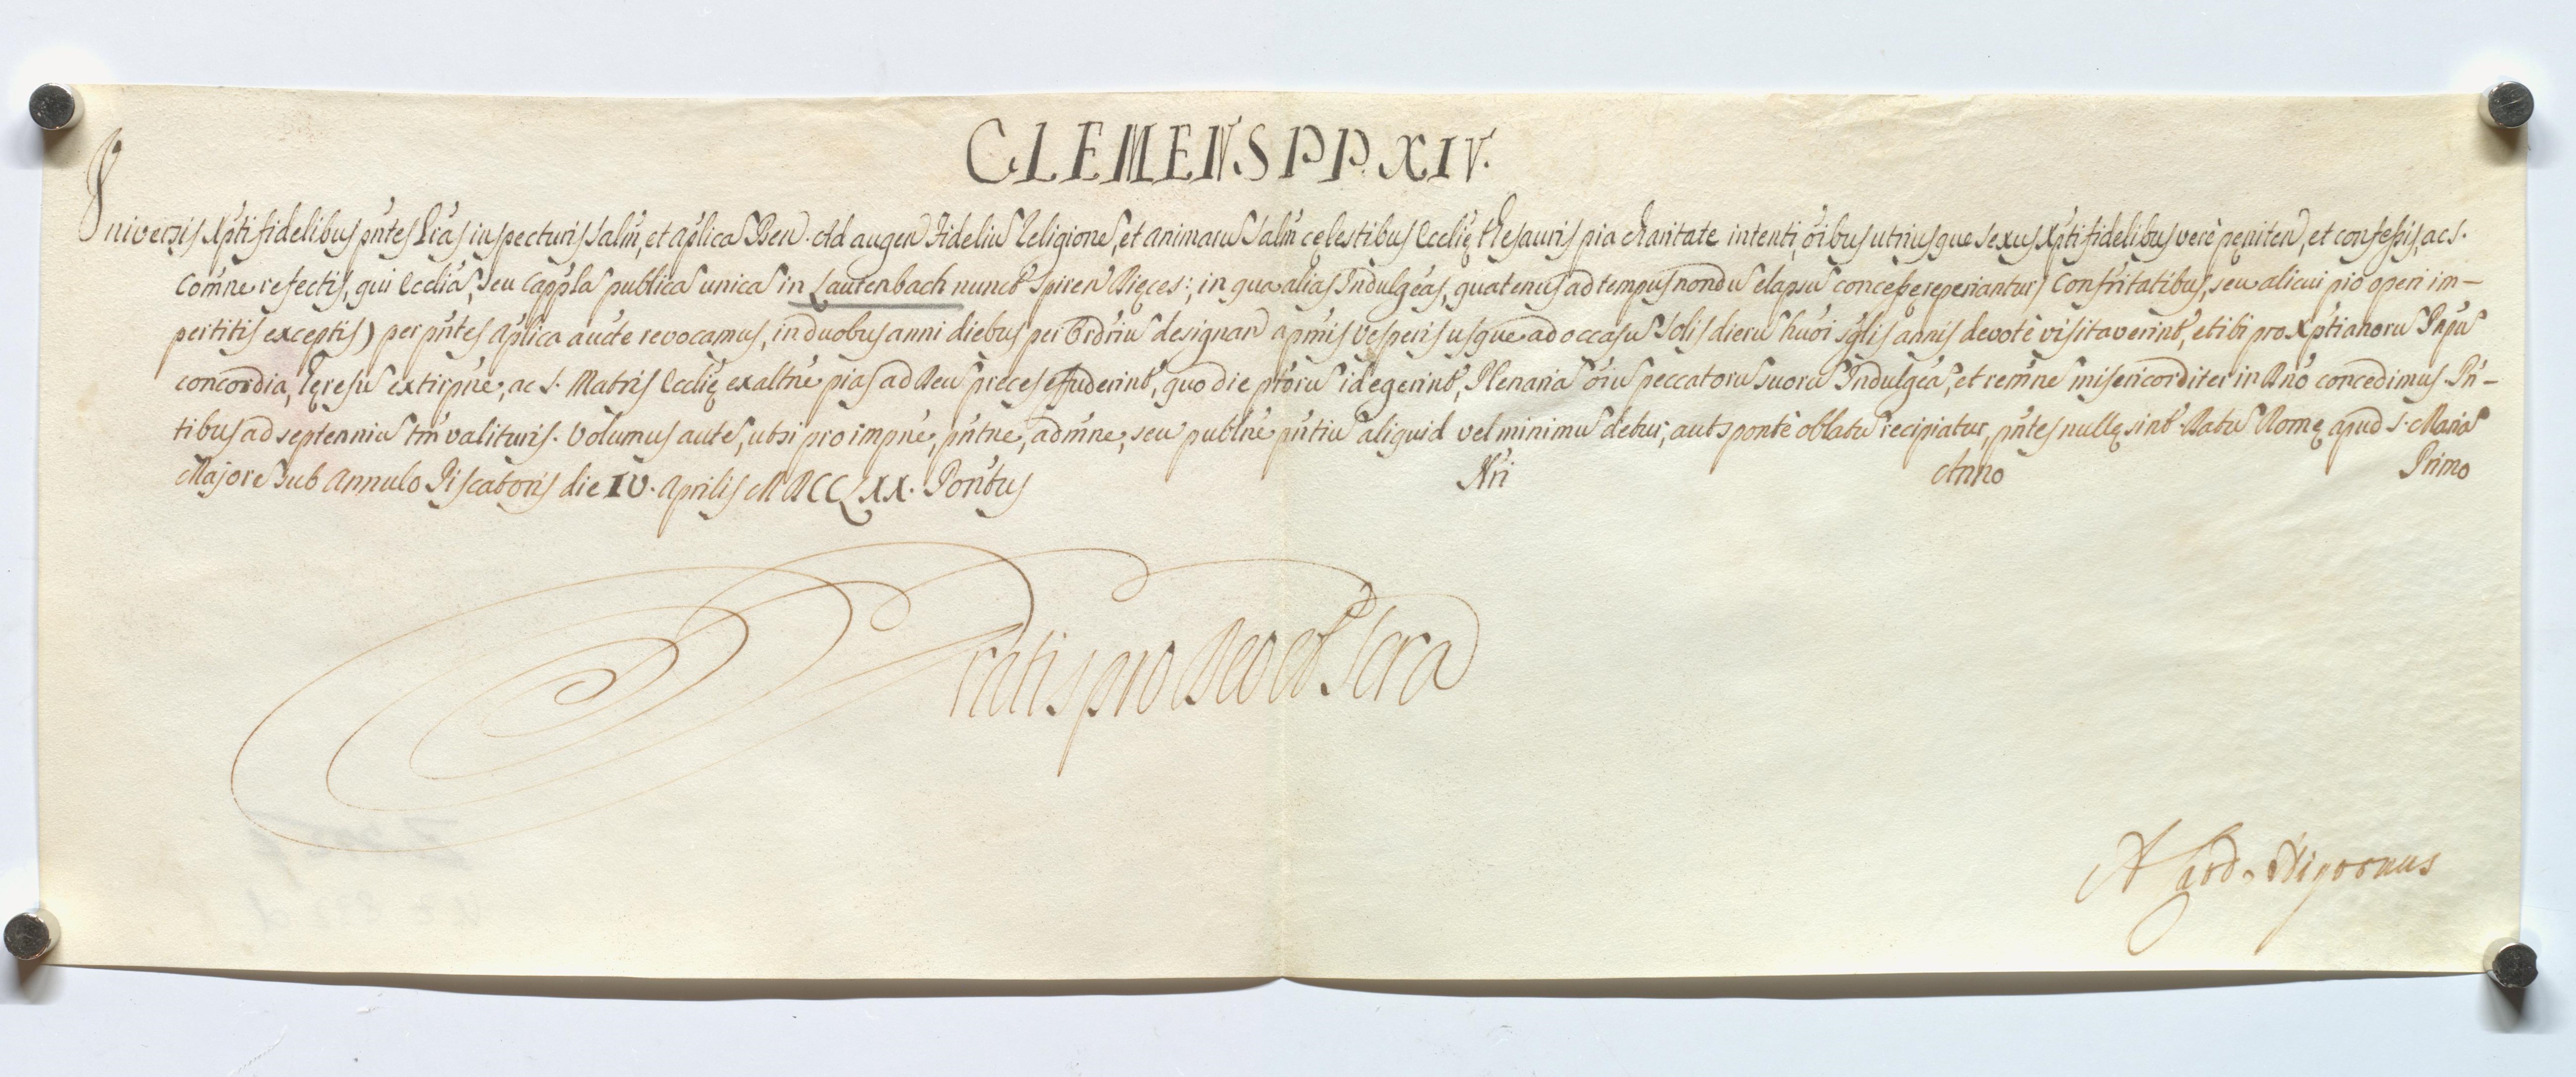 CLEMENS PP. XIV.
Universis Xp̃tifidelibus pñtes Lr̃as inspecturis Salm̃, et ap̃lica Ben. Ad augen Fideliũ Religionẽ, et animarũ Salm̃ cęlestibus Ecclię Thesauris pia charitate intenti, õibus utriusque sexus Xp̃tifidelibus verè pęniten, et confessis, ac S.
Com̃ne refectis, qui Eccliã, seu Capplã publicã unicã in Lautenbach nunct Spiren Dięces:, in qua aliàs Indulgẽas, quatenus ad tempus nondũ elapsũ concesse reperiantur (Confrĩtatibus, seu alicui pio operi im-
pertitis exceptis) per pñtes ap̃lica aucte revocamus, in duobus anni diebus per Ordriũ designan a pm̃is Vesperis usque ad occasũ Solis dierũ hum̃oi sgl̃is annis devotè visitaverint, et ibi pro Xp̃tianorũ Pnpũ
concordia, Hęresũ extirpñe, ac S. Matris Ecclię exaltñe pias ad Deũ preces effuderint, quo die pr̃orũ id egerint, Plenariã õiũ peccatorũ suorũ Indulgẽã, et rem̃ne misericorditer in Dñó concedimus. Pñ-
tibus ad septenniũ tm̃ valituris. Volumus autẽ, ut si pro impñe, pñtñe, adm̃ne, seu publñe pñtiũ aliquid vel minimũ detur, aut spontè oblatũ recipiatur, pñtes nullę sint. Datũ Romę apud S. Mariã
Majorẽ Sub Annulo Piscatoris die IV. Aprilis MDCCLXX. Pontus Nr̃i Anno Primo
Gratis pro Deo et Scra
A Card. Nigronus